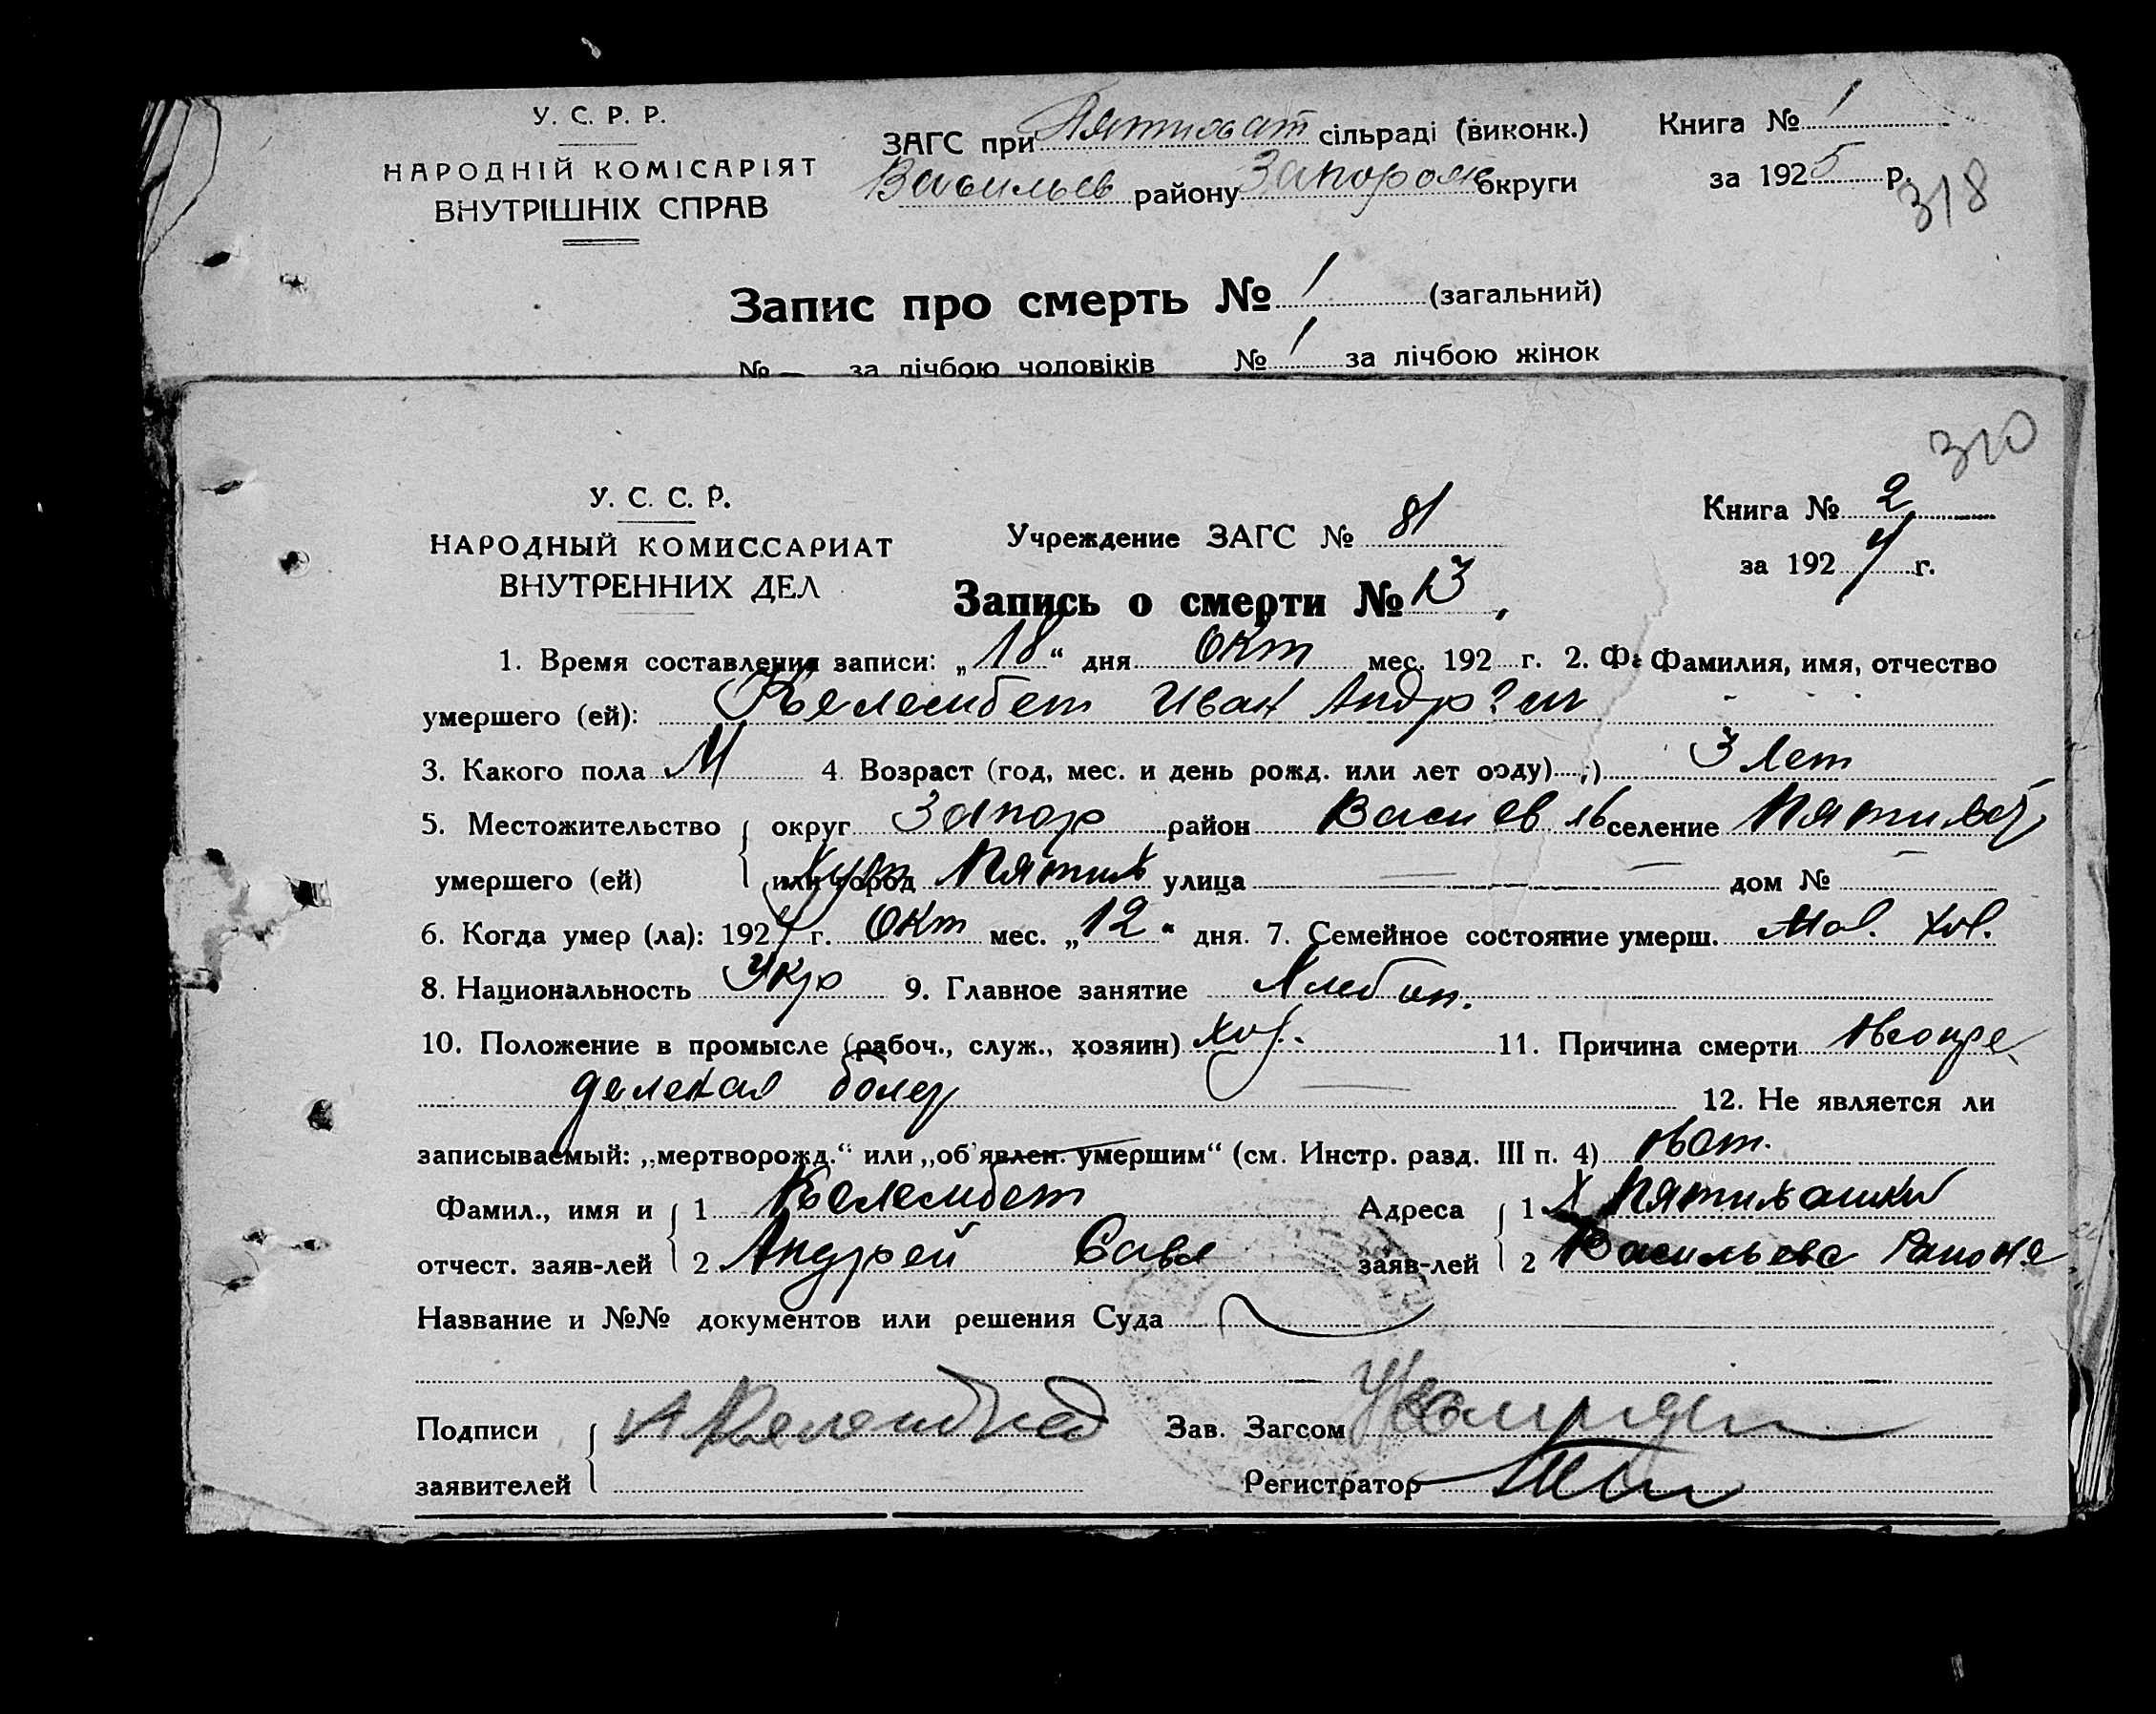 У. С. Р. Р.
НАРОДНІЙ КОМІСАРІЯТ
ВНУТРІШНІХ СПРАВ
ЗАГС при Пятихат сільраді (виконк.)
Васильев району Запорож округи
Книга № 1
за 1925 р.
318
Запис про смерть № 1 (загальний)
№ — за лічбою чоловіків № 1 за лічбою жінок
310
У. С. С. Р.
НАРОДНЫЙ КОМИССАРИАТ
ВНУТРЕННИХ ДЕЛ
Учреждение ЗАГС № 81
Книга № 2
за 1924 г.
Запись о смерти № 13
1. Время составления записи: „18“ дня Окт мес. 192 г. 2. Фамилия, имя, отчество
умершего (ей): Келембет Иван
3. Какого пола М 4. Возраст (год, мес. и день рожд. или лет 3 лет
5. Местожительство округ Запор район селение
умершего (ей) или город Пятих улица — дом № —
6. Когда умер (ла): 1924 г. Окт мес. „12“ дня. 7. Семейное состояние умерш.
8. Национальность Укр 9. Главное занятие
10. Положение в промысле (рабоч., служ., хозяин) 11. Причина смерти неопре
деленая болез 12. Не является ли
записываемый: „мертворожд.“ или „об'явлен. умершим“ (см. Инстр. разд. III п. 4)
Фамил., имя и 1 Келембет Адреса 1 Х Пятихатки
отчест. заяв-лей 2 Андрей Савв заяв-лей 2 Васильева Района
Название и №№ документов или решения Суда
Подписи А Келембет Зав. Загсом
заявителей Регистратор